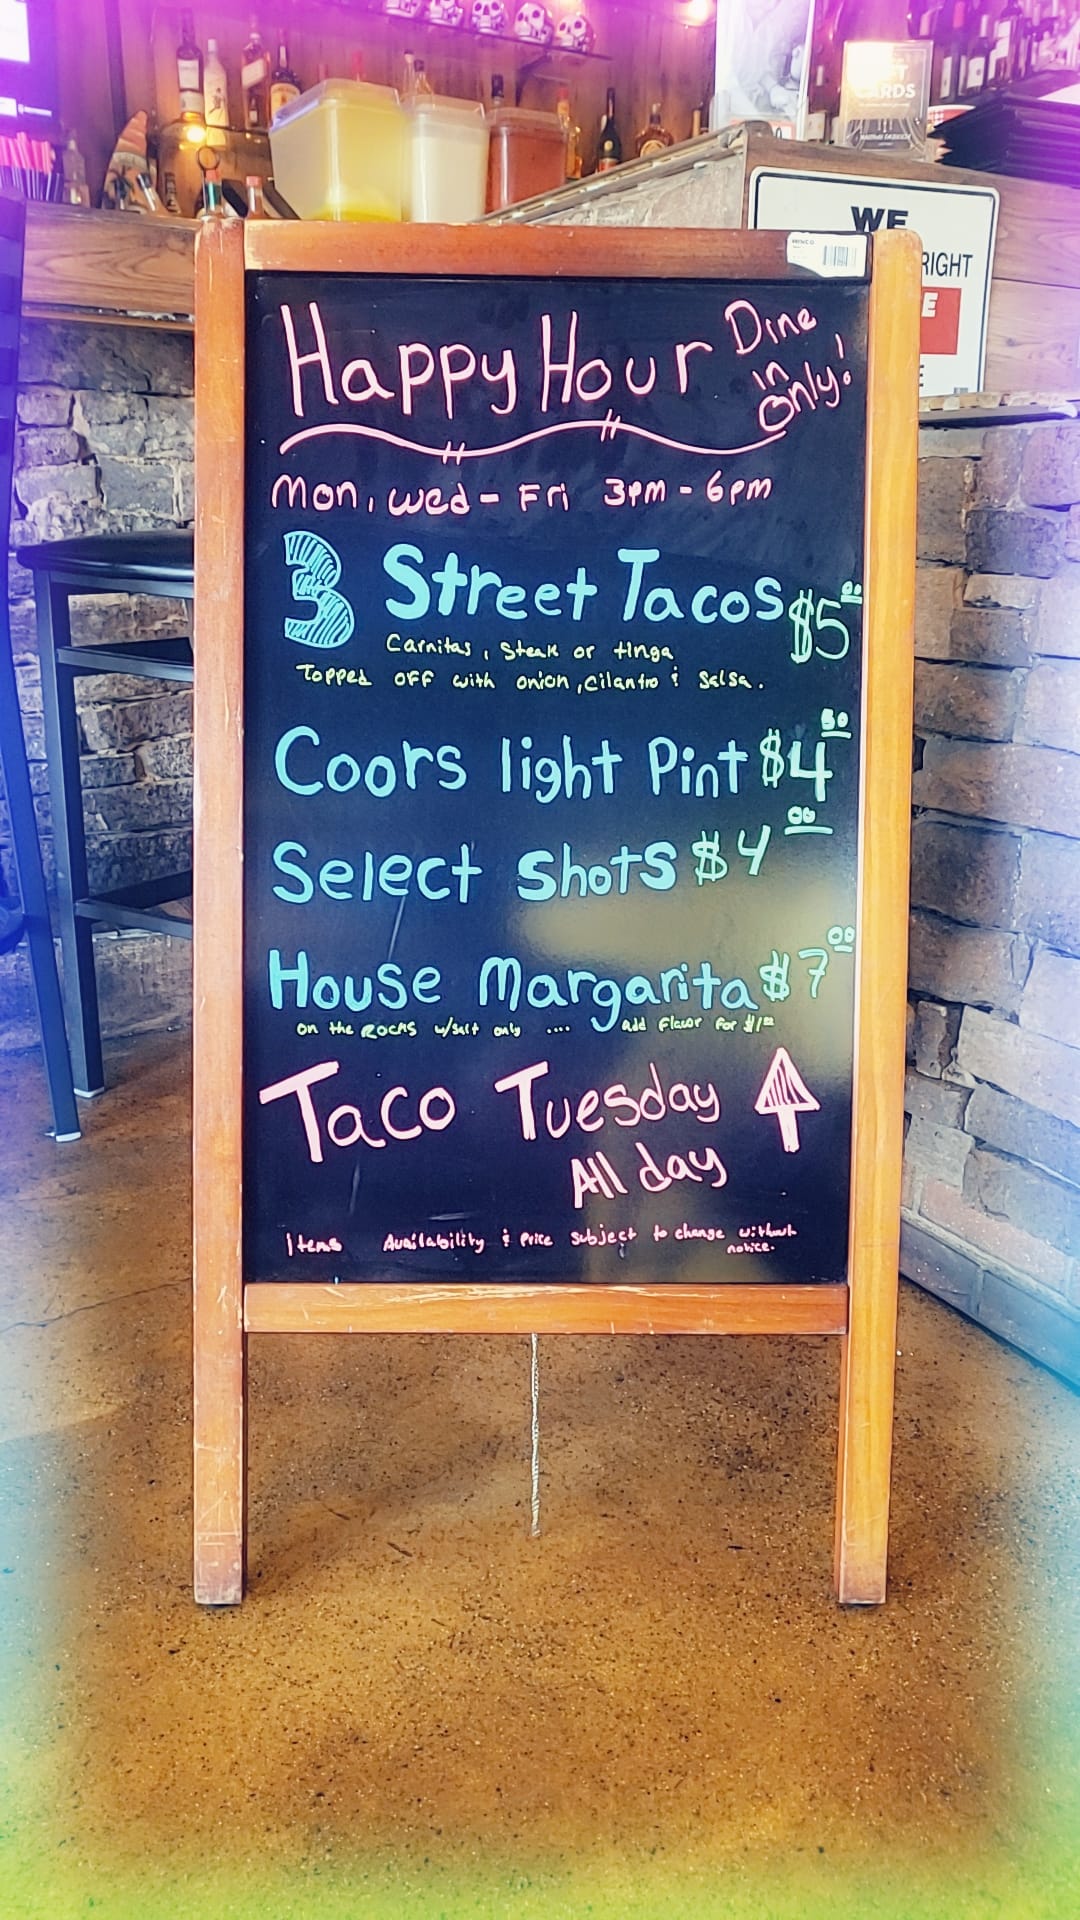 WE
RIGHT
E
E
CARDS
WINCO
Happy Hour Dine
in
Only!
Mon, Wed - Fri 3pm - 6pm
3 Street Tacos $5.00
Carnitas, Steak or tinga
Topped OFF with onion, cilantro & Salsa.
Coors light Pint $4.50
Select Shots $4.00
House Margarita $7.00
on the Rocks w/salt only .... add Flavor For $1.00
Taco Tuesday ↑
All day
Items Availability & Price Subject to change without
notice.